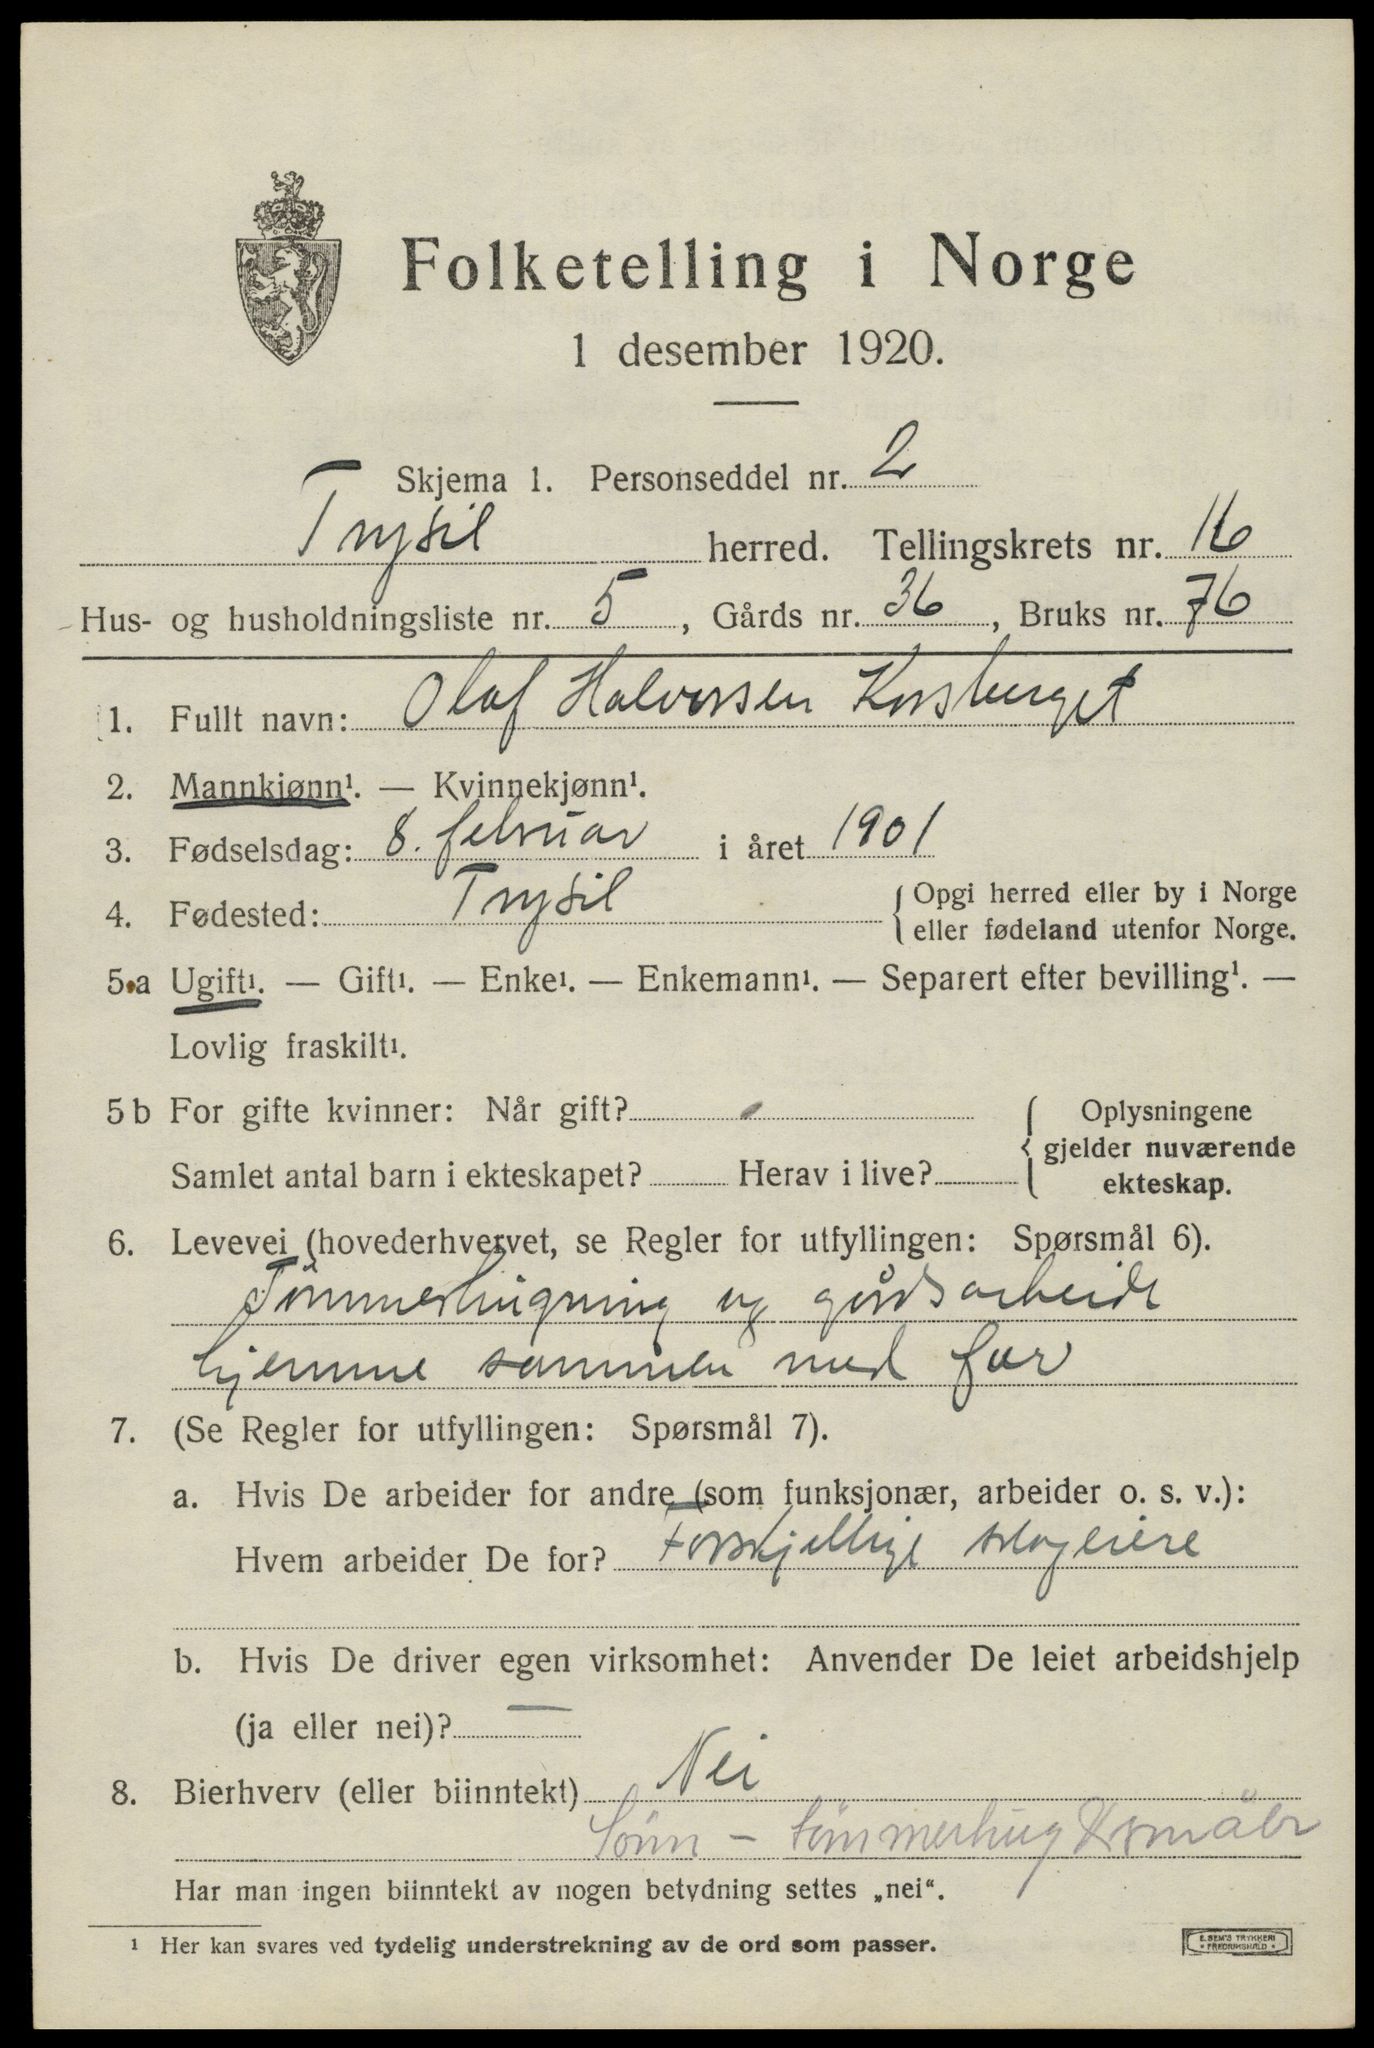 Folketelling i Norge
1 desember 1920.
Skjema 1. Personseddel nr. 2
Trysil herred. Tellingskrets nr. 16
Hus- og husholdningsliste nr. 5, Gårds nr. 36, Bruks nr. 76
1. Fullt navn: Olaf Halvorsen Korsberget
2. Mannkjønn¹. — Kvinnekjønn¹.
3. Fødselsdag: 8. februar i året 1901
4. Fødested: Trysil { Opgi herred eller by i Norge
eller fødeland utenfor Norge.
5.a Ugift¹. — Gift¹. — Enke¹. — Enkemann¹. — Separert efter bevilling¹. —
Lovlig fraskilt¹.
5 b For gifte kvinner: Når gift? { Oplysningene
gjelder nuværende
Samlet antal barn i ekteskapet? Herav i live? ekteskap.
6. Levevei (hovederhvervet, se Regler for utfyllingen: Spørsmål 6).
Tømmerhugning og gårdsarbeide
hjemme sammen med far
7. (Se Regler for utfyllingen: Spørsmål 7).
a. Hvis De arbeider for andre (som funksjonær, arbeider o. s. v.):
Hvem arbeider De for? Forskjellige skogeiere
b. Hvis De driver egen virksomhet: Anvender De leiet arbeidshjelp
(ja eller nei)? —
8. Bierhverv (eller biinntekt) Nei
Sønn - tømmerhug
Har man ingen biinntekt av nogen betydning settes „nei“.
¹ Her kan svares ved tydelig understrekning av de ord som passer.
E. SEM'S TRYKKERI
FREDRIKSHALD